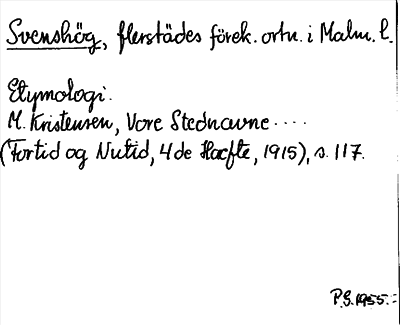 Svenshög, flerstädes förek. ortn. i Malm. l.
Etymologi.
M. Kristensen, Vore Stednavne ....
(Fortid og Nutid, 4de Haefte, 1915), s. 117.
P.G. 1955.